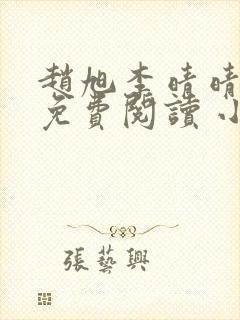 趙旭李晴晴
免費閱讀小
張藝興